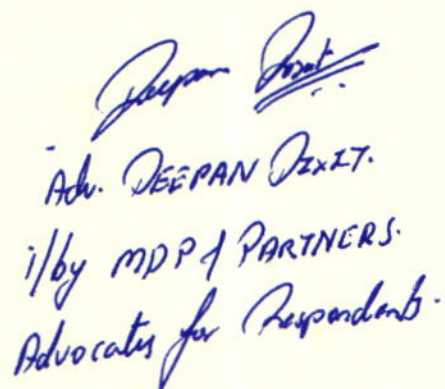 Deepan Dixit
Adv. DEEPAN DIXIT.
i/by MDP & PARTNERS.
Advocates for Respondents.